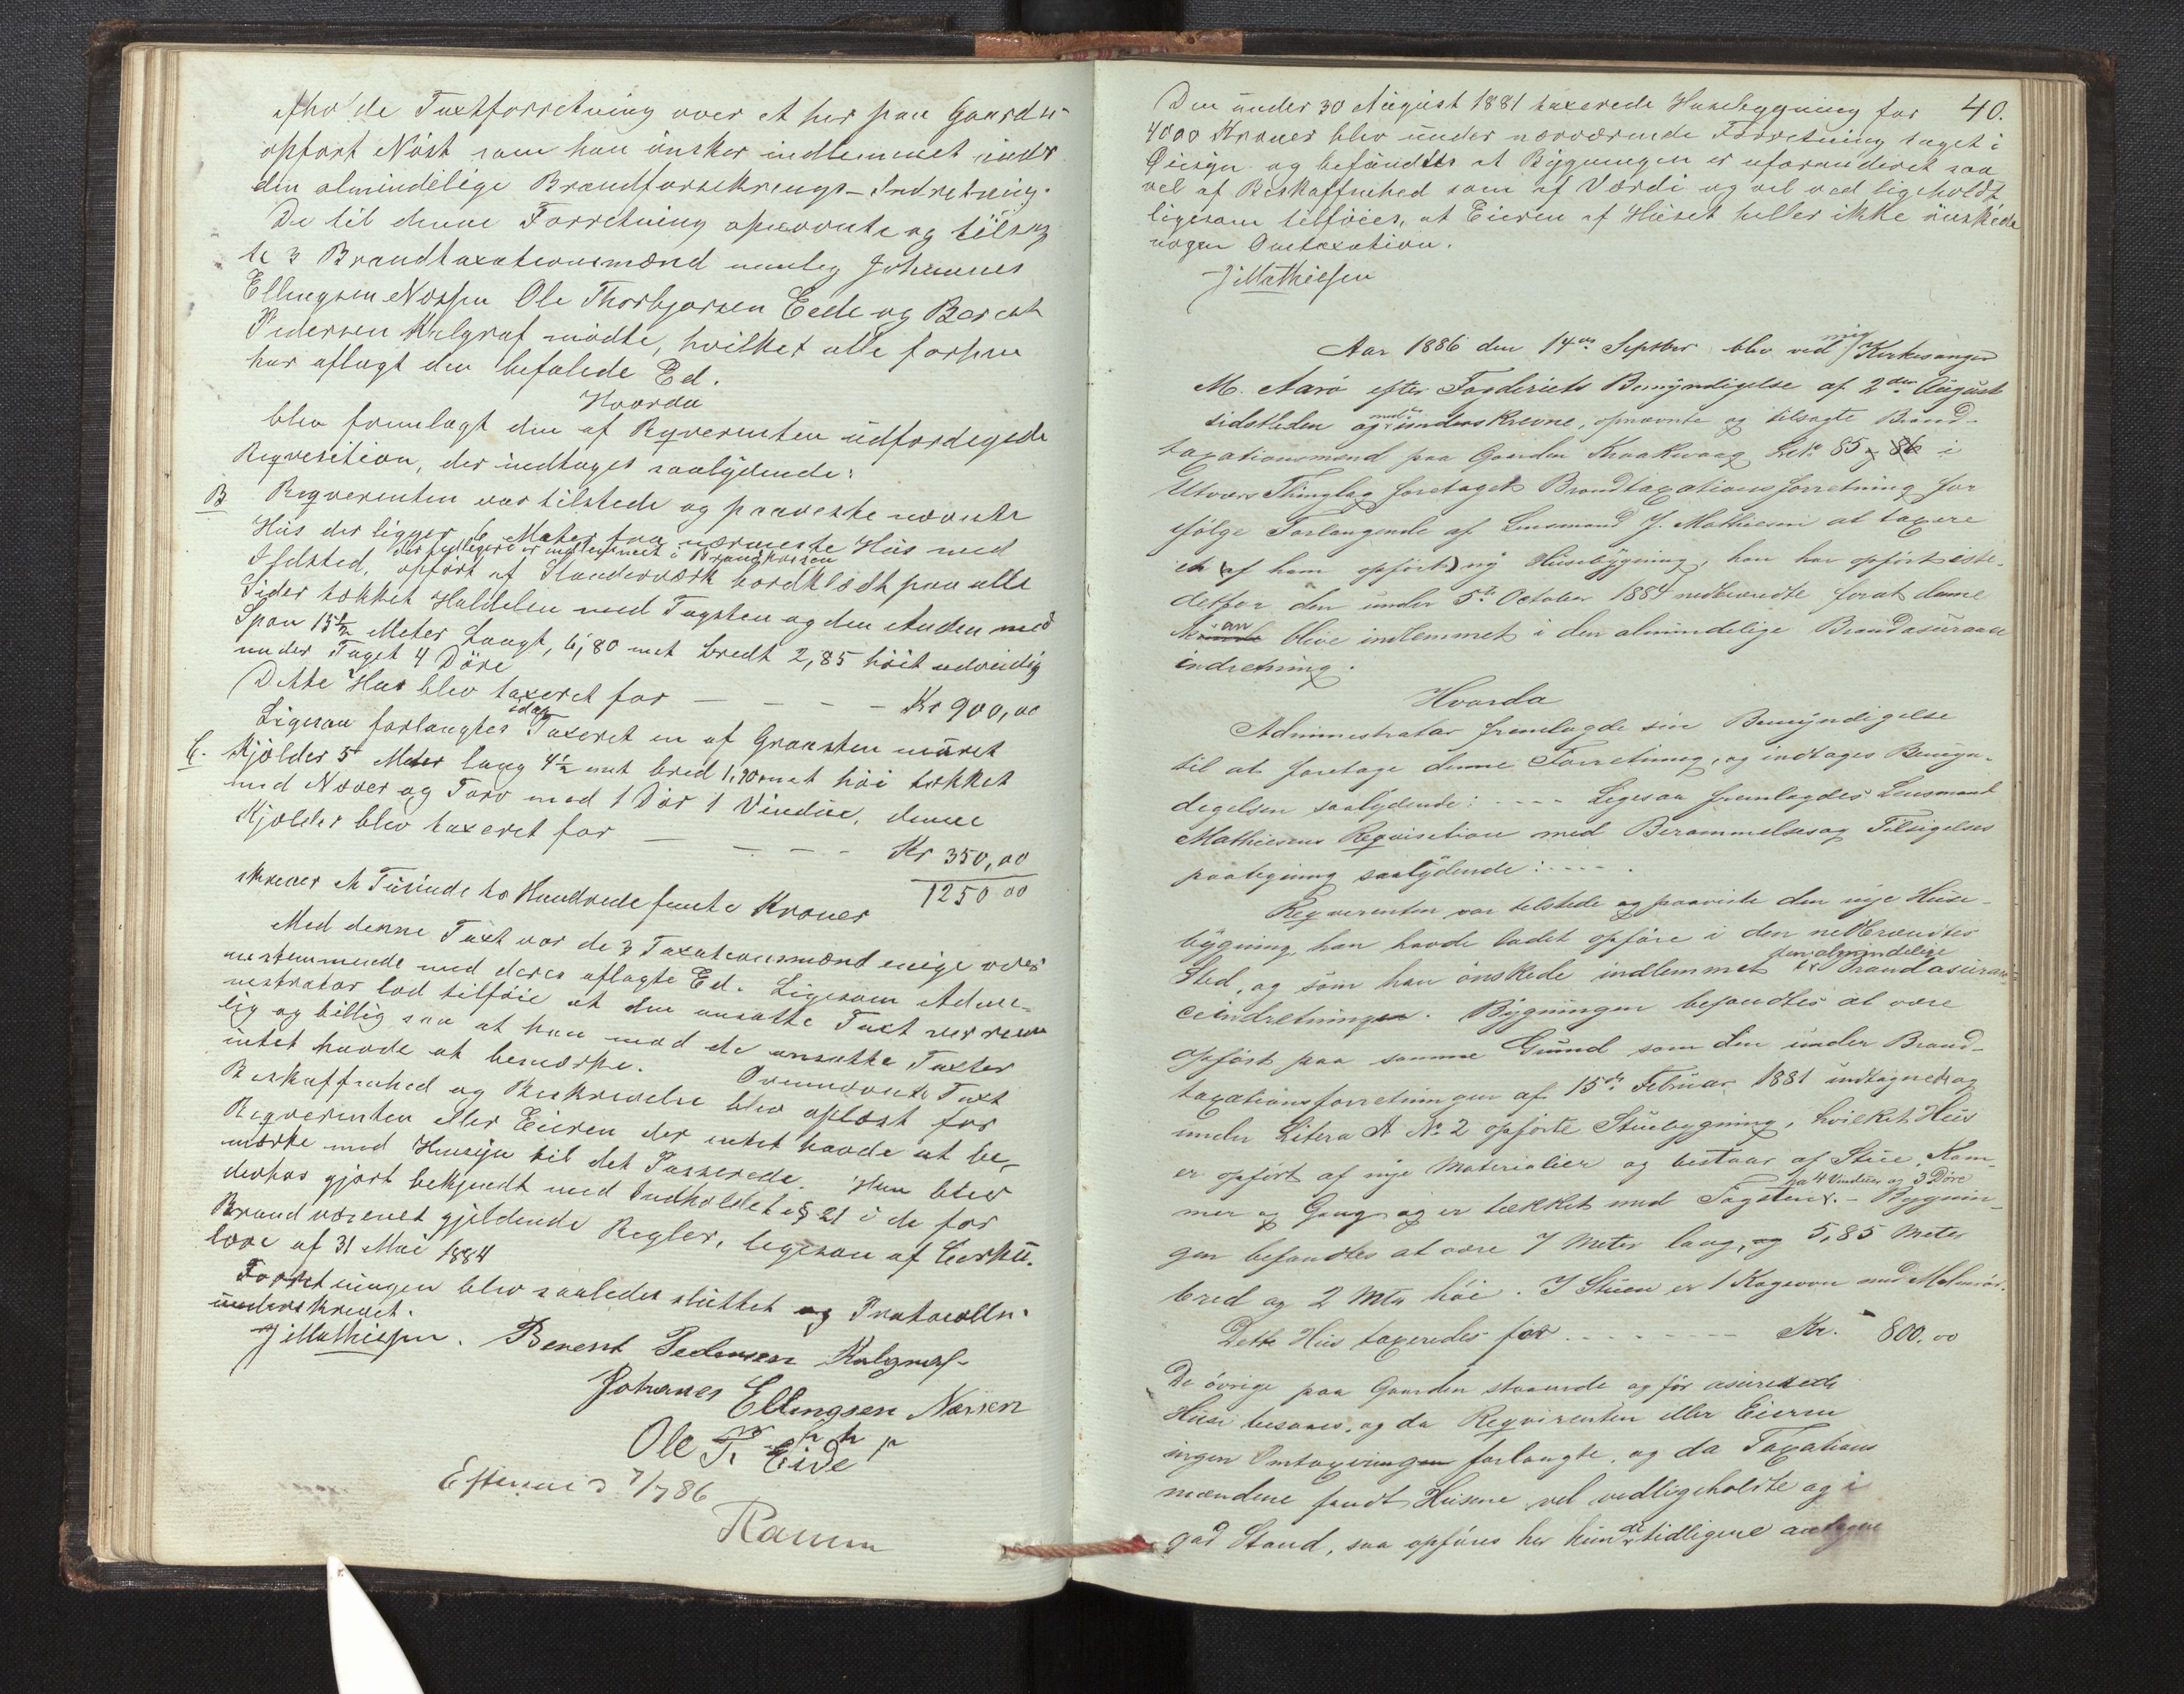 afholde Taxtforretning over et her paa Gaarden
opført Nøst som han ønsker indlemmet under
den almindelige Brandforsikrings-Indretning.
De til denne Forretning opnævnte og tilsag
te 3 Brandtaxationsmænd nemlig Johannes
Ellingsen Næssen Ole Thorbjørsen Eede og Berent
Pedersen Kalgraf mødte, hvilket alle forhen
har aflagt den befalede Ed.
Hvorda
blev fremlagt den af Reqverenten udfærdigede
Reqvesition, der indtages saalydende:
B Reqverenten var tilstede og paaviste nævnte
Hus der ligger 6 Meter fra nærmeste Hus med
der tidligere er indlemmet i Brandkassen
Ildsted, opført af Standerværk bordklædt paa alle
Sider tækket Haldelen med Tagsten og den Anden med
Spon 15½ Meter Langt, 6,80 met bredt 2,85 høit udvendig
under Taget 4 Døre
Dette Hus blev taxeret for — — — — Kr 900,00
Ligesaa forlangtes idag Taxeret en af Graasten muret
C. Kjælder 5 Meter lang 4½ met bred 1,90 met høi tækket
med Næver og Torv med 1 Dør 1 Vindue, denne
Kjælder blev taxeret for — — — — Kr 350,00
1250 00
skriver et Tusinde to Hundrede femti Kroner
Med denne Taxt var de 3 Taxationsmænd enige over
ensstemmende med deres aflagte Ed. Ligesom Admi-
nistrator lod tilføie at den ansatte Taxt var rime
lig og billig saa at han mod de ansatte Taxter
intet havde at bemærke. Ovennævnte Taxt
Beskaffenhed og Beskrivelse blev oplæst for
Reqverenten eller Eieren der intet havde at be-
mærke med Hensyn til det Passerede. Han blev
derhos gjort bekjendt med Indholdet § 21 i de for
Brandvæsenet gjeldende Regler, ligesom af Cirku-
lære af 31 Mai 1884
Forretningen blev saaledes sluttet og Protocollen
underskrevet.
J Mathiesen. Berent Pedersen Kalgraf
Johanes Ellingsen Næssen
m h h p
Ole T. Eide
Efterseet 7/7 86
Ramm
40.
Den under 30 August 1881 taxerede Husebygning for
4000 Kroner blev under nærværende Forretning taget i
Øiesyn og befandtes at Bygningen er uforanderet saa
vel af Beskaffenhed som af Værdi og vel vedligeholdt
ligesom tilføies, at Eieren af Huset heller ikke ønskede
nogen Omtaxation.
J Mathiesen
Aar 1886 den 14de Septbr blev ved mig Kirkesanger
M. Aarø efter Fogderiets Bemyndigelse af 2den August
sidstleden og med underskrevne, opnævnte og tilsagte Brand-
taxationsmænd paa Gaarden Knakvaag Litr 85 og 86 i
Utvær Thinglag foretaget Brandtaxationsforretning for
ifølge Forlangende af Lensmand J. Mathiesen at taxere
en (af ham opført) ny Husebygning, han har opført iste-
detfor den under 5te October 1884 nedbrændte forat denne
kan blive indlemmet i den almindelige Brandasurance
indretning.
Hvorda
Administrator fremlagde sin Bemyndigelse
til at foretage denne Forretning, og indtages Bemyn-
digelsen saalydende: ---- Ligesaa fremlagdes Lensmand
Mathiesens Reqvisition med Berammelses og Tilsigelses
paategning saalydende: ----
Reqverenten var tilstede og paaviste den nye Huse-
bygning, han havde ladet opføre i den nedbrændtes
Sted, og som han ønskede indlemmet i den almindelige Brandasuran-
ceindretningen. Bygningen befandtes at være
opført paa samme Grund som den under Brand-
taxationsforretningen af 15de Februar 1881 indtagne og
under Litera A No 2 opførte Stuebygning, hvilket Hus
er opført af nye Materialier og bestaar af Stue, Kam-
mer og Gang og er tækket med Tagsten. har 4 Vinduer og 3 Døre - Bygnin-
gen befandtes at være 7 Meter lang, og 5,85 Meter
bred og 2 Mtr høi. I Stuen er 1 Kogeovn med Malmrør.
Dette Hus taxeredes for -------- Kr. 800.00
De øvrige paa Gaarden staaende og før asurerede
Huse besaaes, og da Reqvirenten eller Eieren
ingen Omtaxeringen forlangte, og da Taxations
mændene fandt Husene vel vedligeholdte og i
god Stand, saa opføres her kun de tidligere antagne